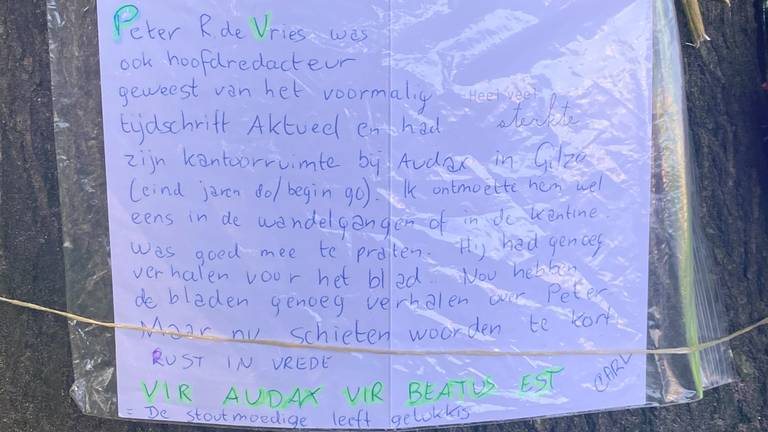 Peter R. de Vries was
ook hoofdredacteur
geweest van het voormalig
Heel veel
sterkte
tijdschrift Aktueel en had
zijn kantoorruimte bij Audax in Gilze
(eind jaren 80/begin 90). Ik ontmoette hem wel
eens in de wandelgangen of in de kantine.
Was goed mee te praten. Hij had genoeg
verhalen voor het blad. Nou hebben
de bladen genoeg verhalen over Peter
Maar nu schieten woorden te kort
RUST IN VREDE
CARL
VIR AUDAX VIR BEATUS EST
= De stoutmoedige leeft gelukkig